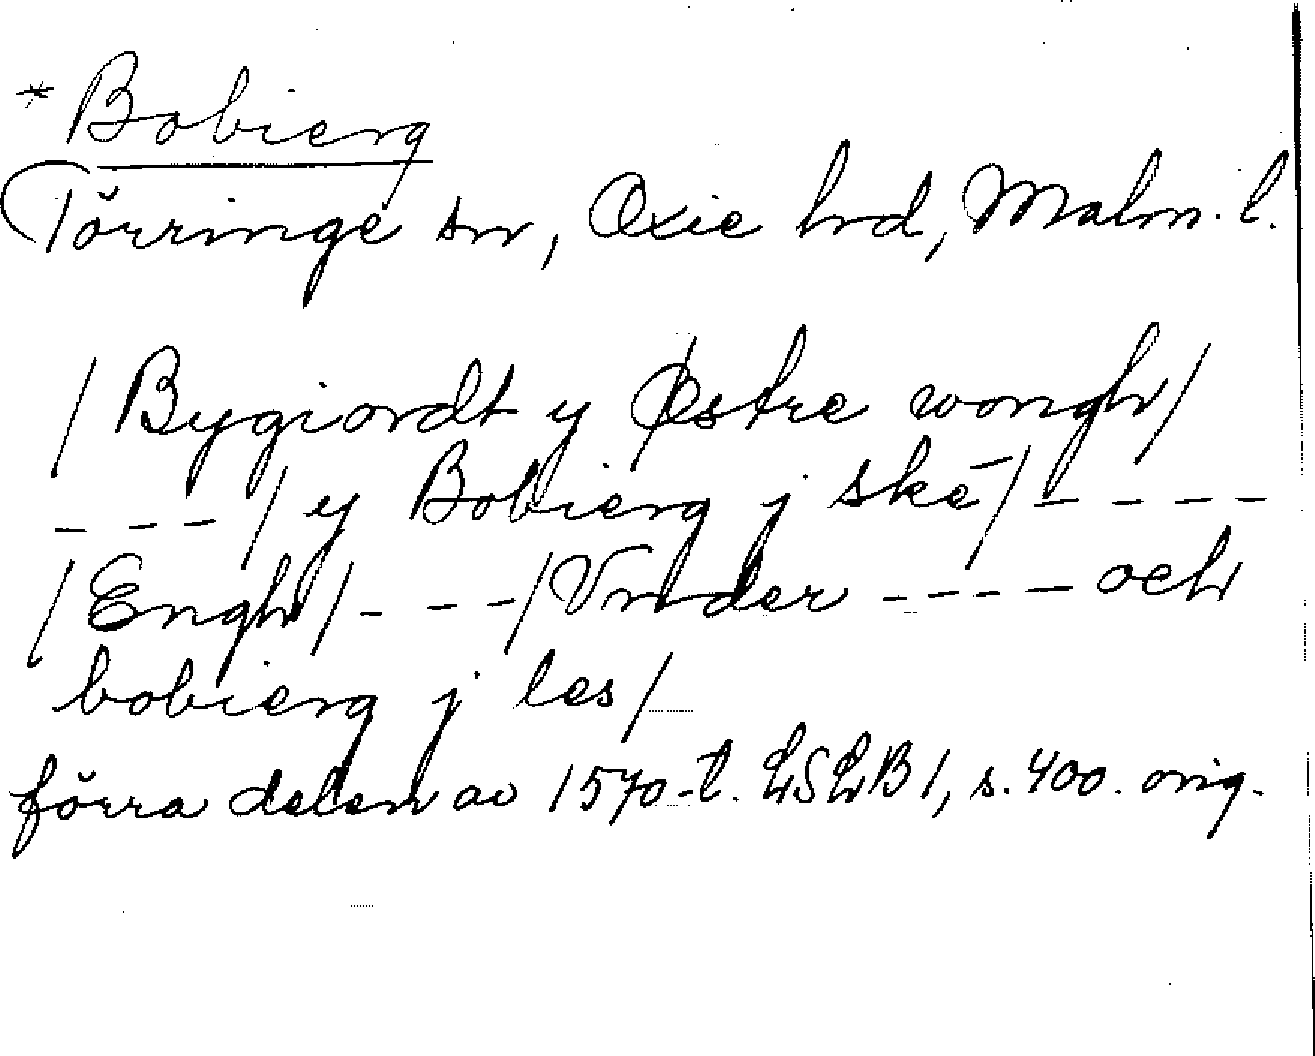 *Bobierg
Törringe sn, Oxie hd, Malm. l.
/Bygiordt y Østre wongh/
- - - / y Bobierg j skē / - - - -
/Engh/ - - - /Vnder - - - - och
bobierg j les/
förra delen av 1570-t. LSLB 1, s. 400. orig.